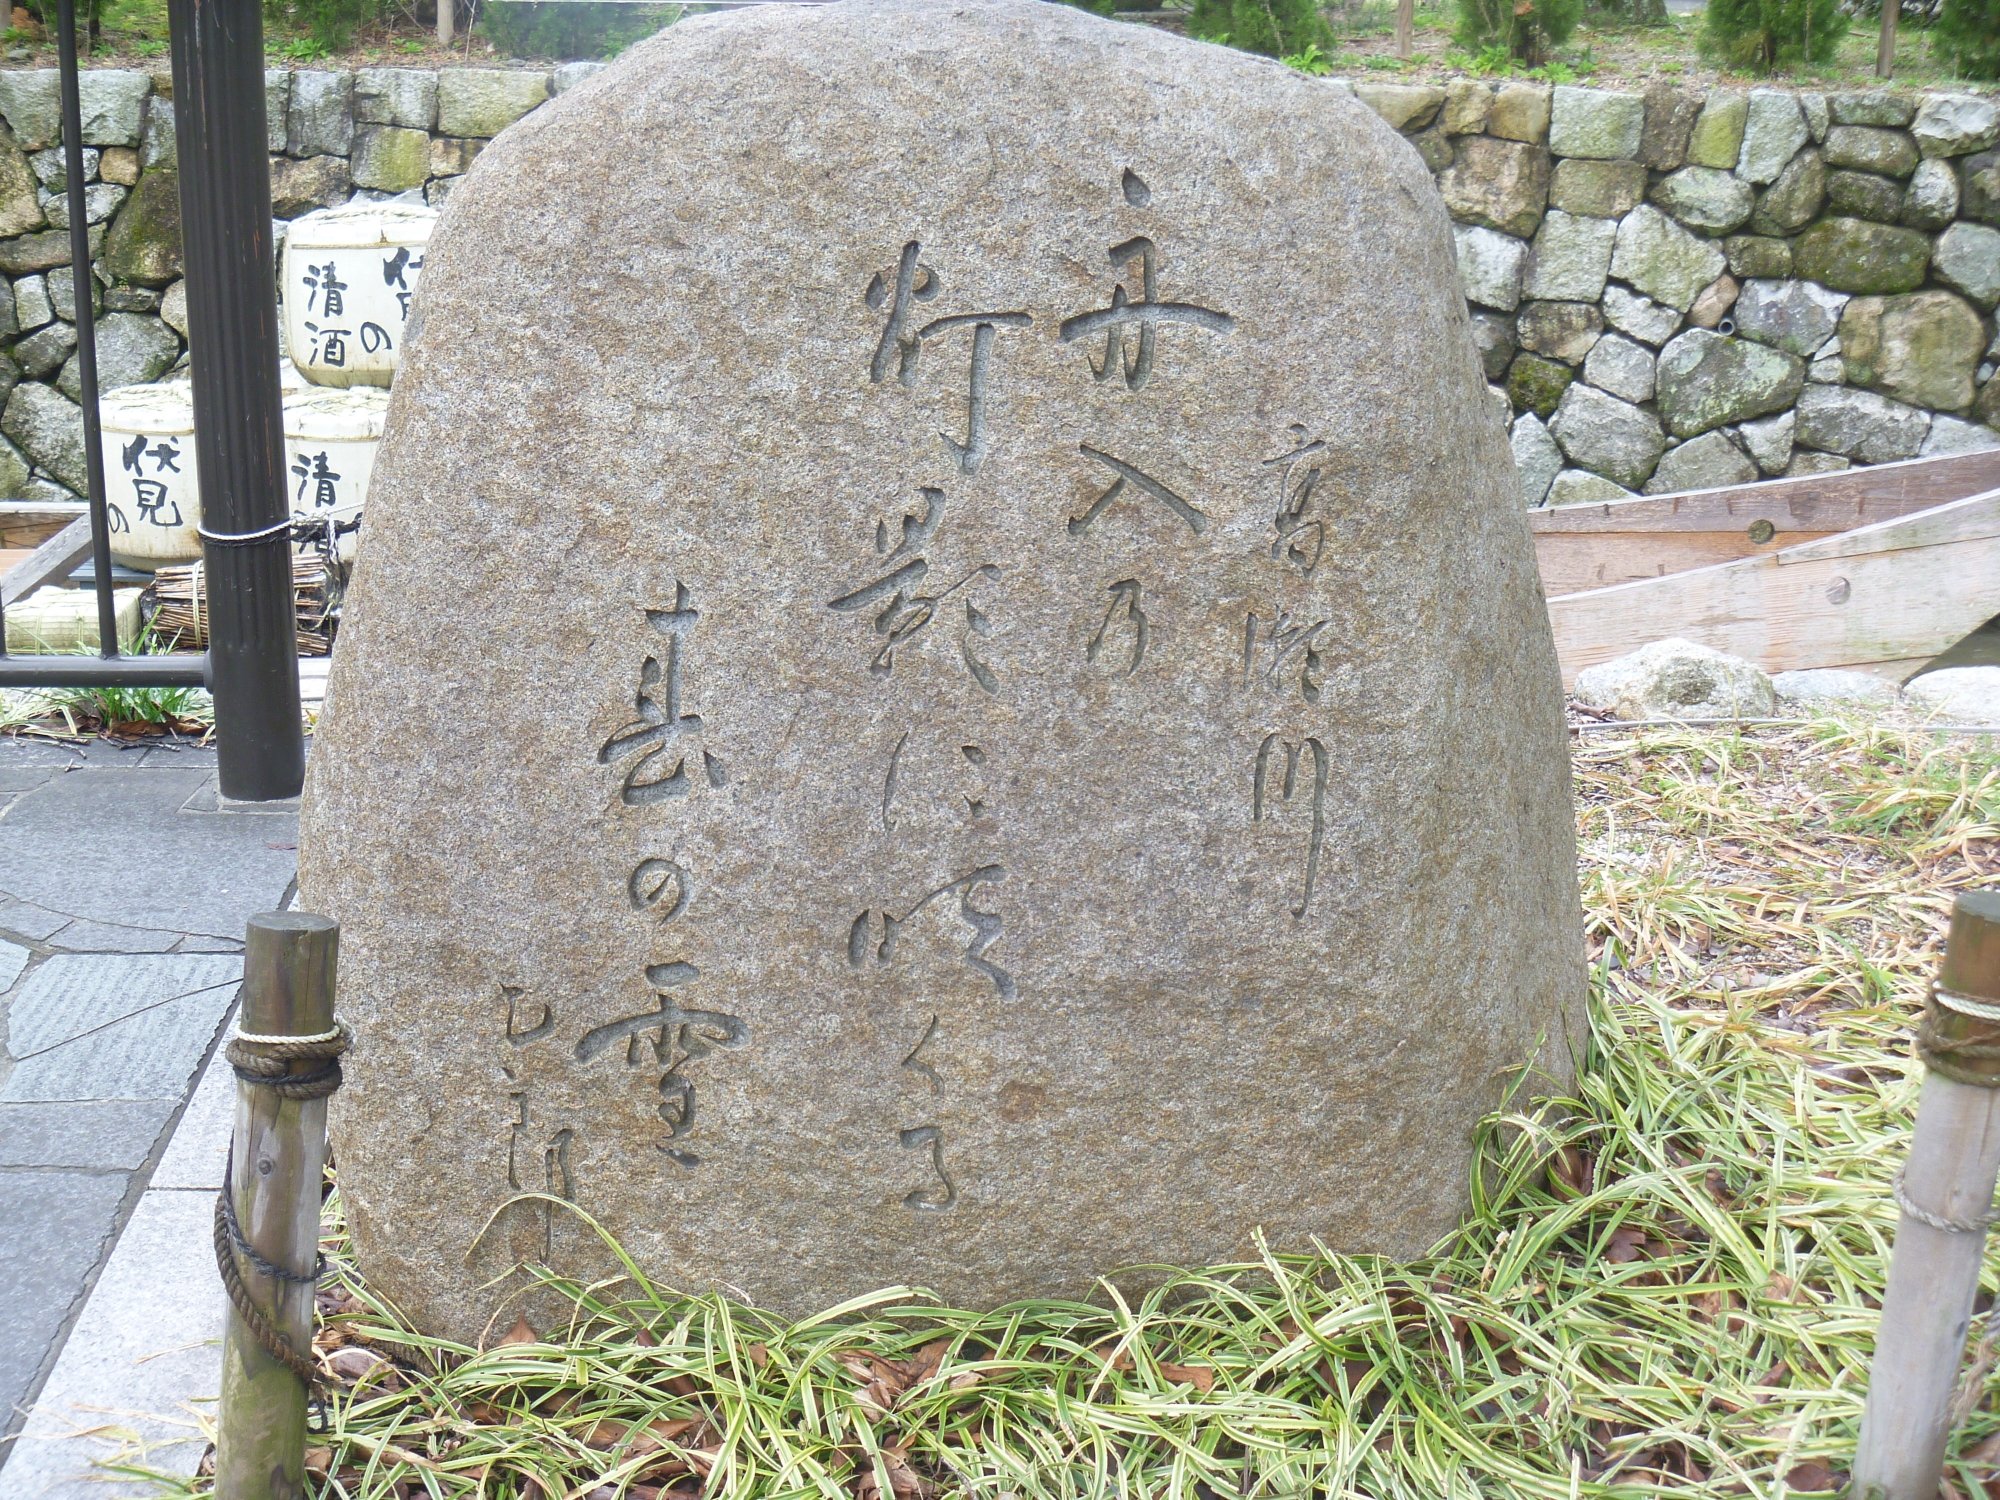 高瀬川
舟入乃
灯影にくる
春の雪
伏
の
清酒
伏見
の
清